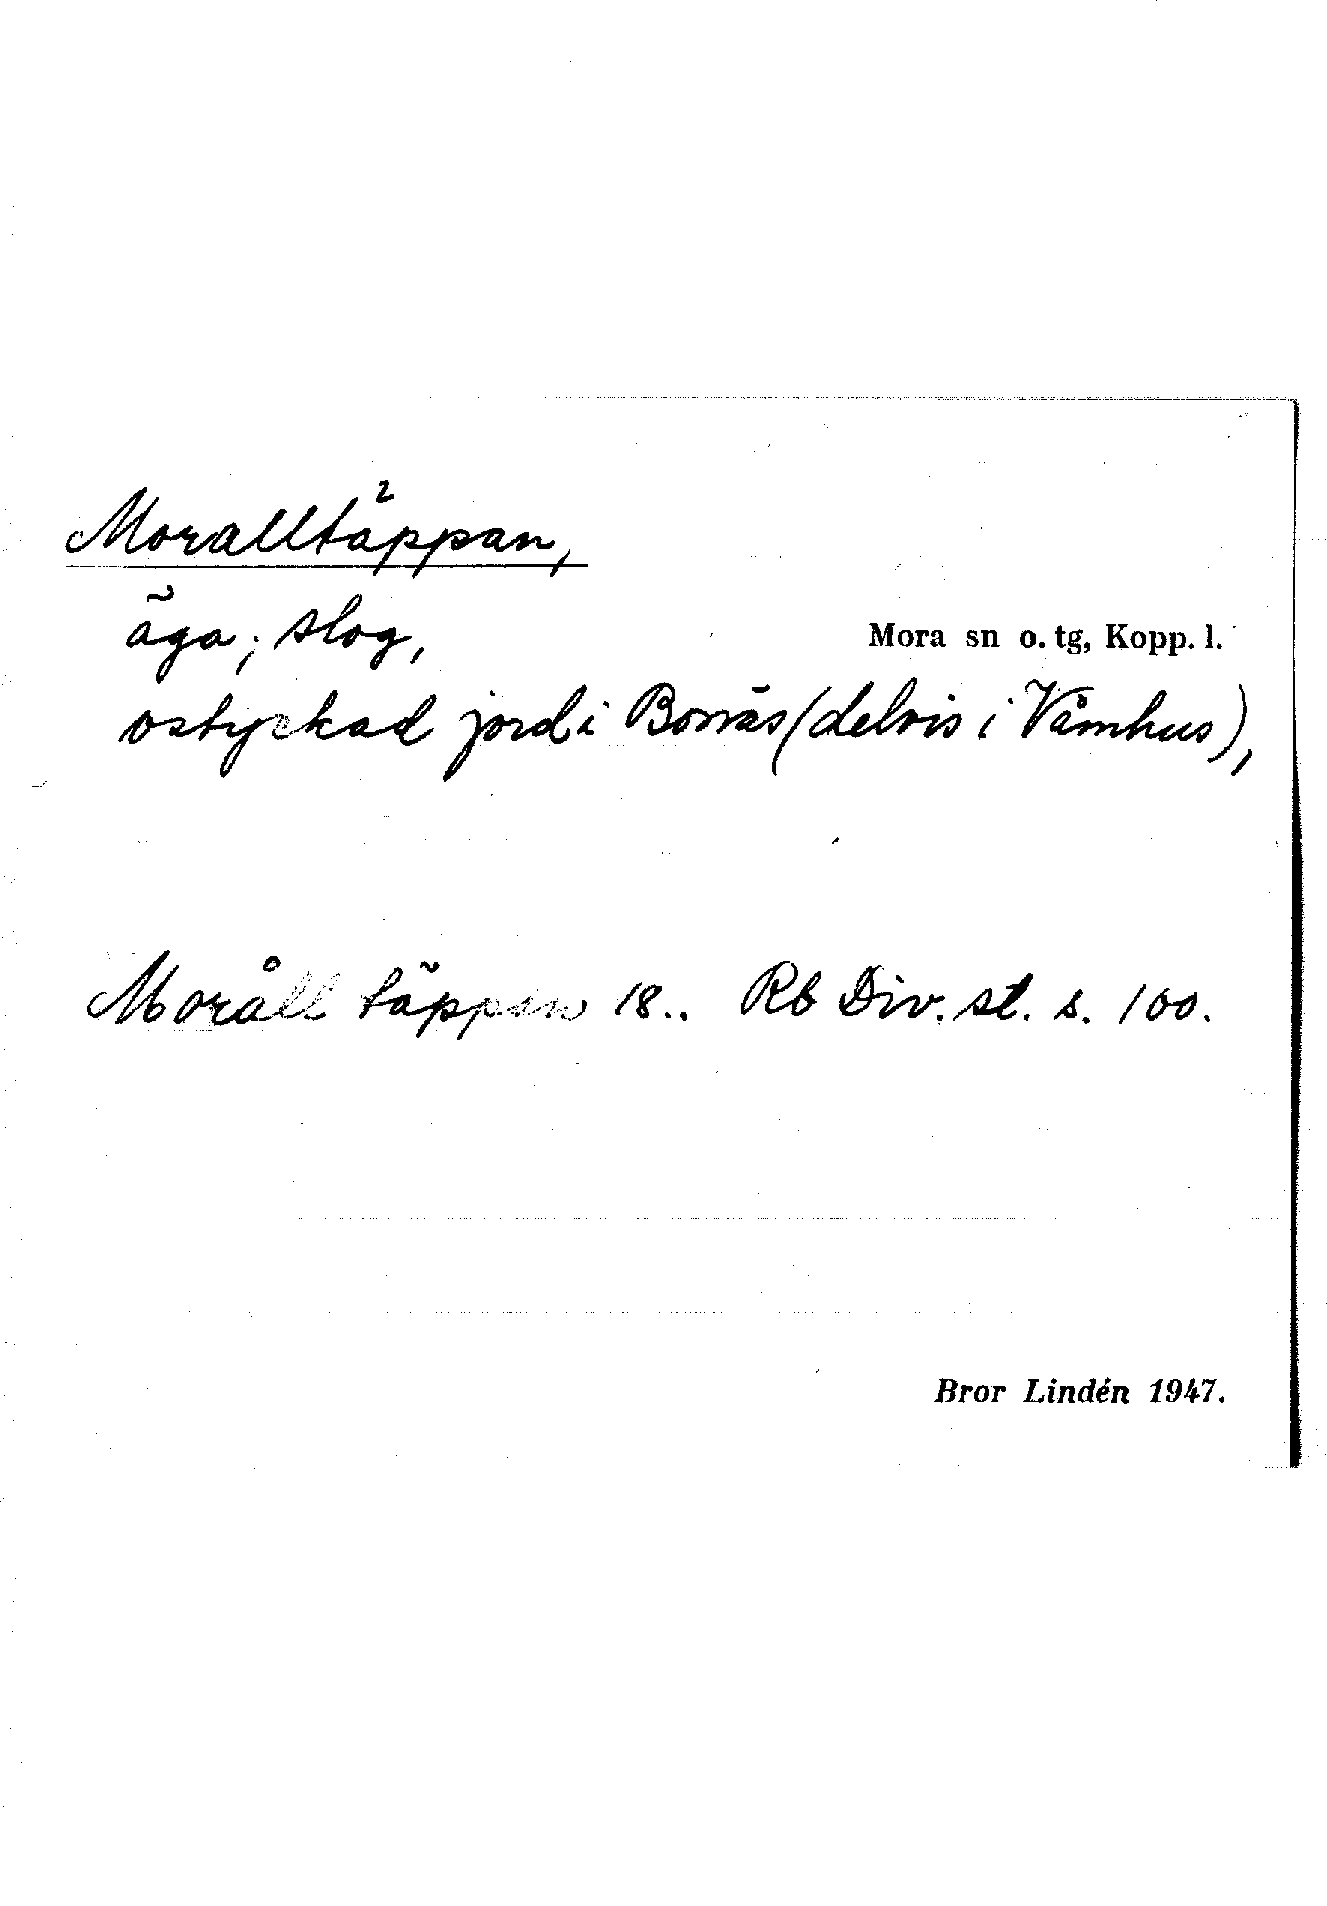 Moralltäppan,
äga; slog,
Mora sn o. tg, Kopp. l.
ostyckad jord i Bonäs (delvis i Våmhus),
Moråll täppan 18.. Rb Div. st. s. 100.
Bror Lindén 1947.